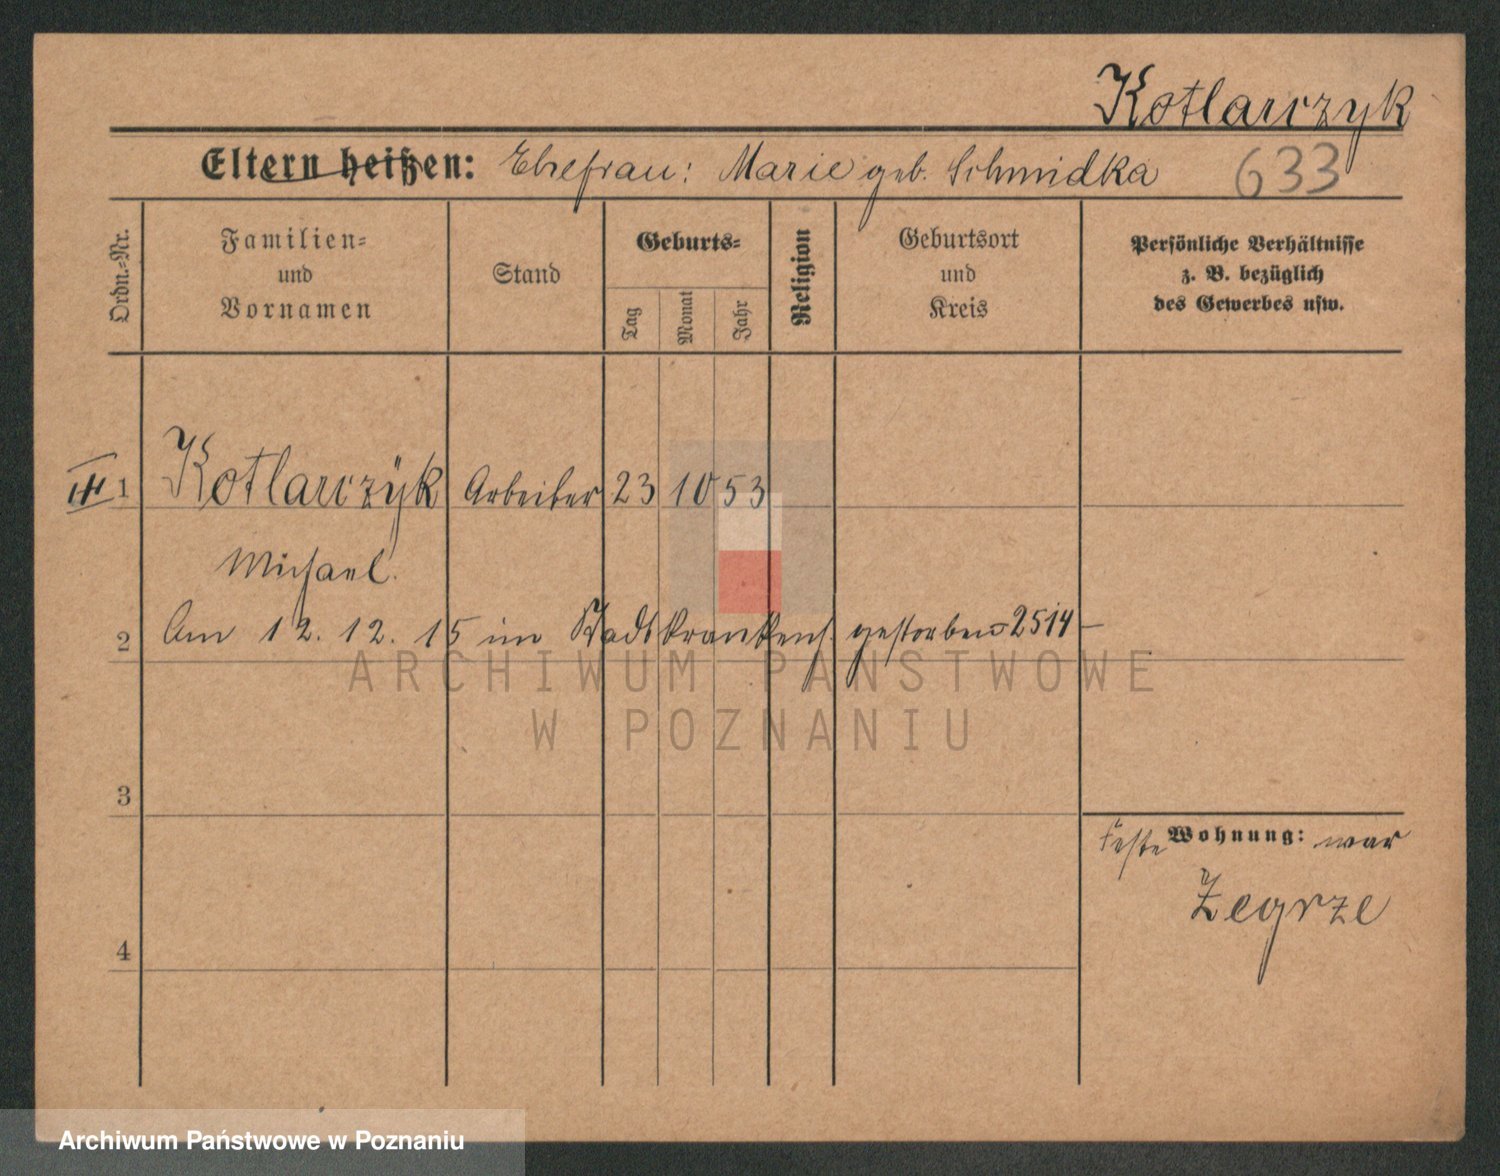 Kotlarczyk
Eltern heißen: Ehefrau: Marie geb. Schmidka 633
Ordn.-Nr.
Familien-
und
Vornamen
Stand
Geburts-
Tag
Monat
Jahr
Religion
Geburtsort
und
Kreis
Persönliche Verhältnisse
z. B. bezüglich
des Gewerbes usw.
1 Kotlarczyk Arbeiter 23 10 53
Michael.
2 Am 12. 12. 15 im Stadtkrankenh. gestorben - 2514 -
ARCHIWUM PAŃSTWOWE
W POZNANIU
3
feste Wohnung: war
Zegrze
4
Archiwum Państwowe w Poznaniu